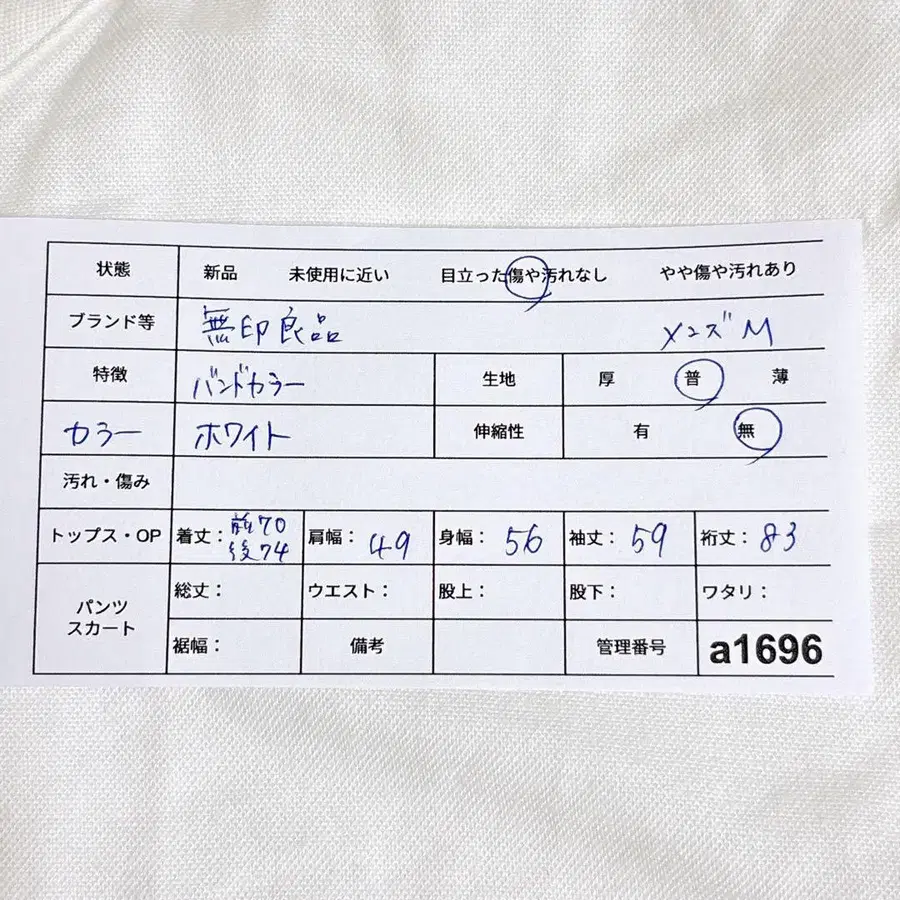 状態 新品 未使用に近い 目立った傷や汚れなし やや傷や汚れあり
ブランド等 無印良品 メンズM
特徴 バンドカラー 生地 厚 普 薄
カラー ホワイト 伸縮性 有 無
汚れ・傷み
トップス・OP 着丈:前70 後74 肩幅:49 身幅:56 袖丈:59 裄丈:83
パンツ スカート 総丈: ウエスト: 股上: 股下: ワタリ:
裾幅: 備考 管理番号 a1696